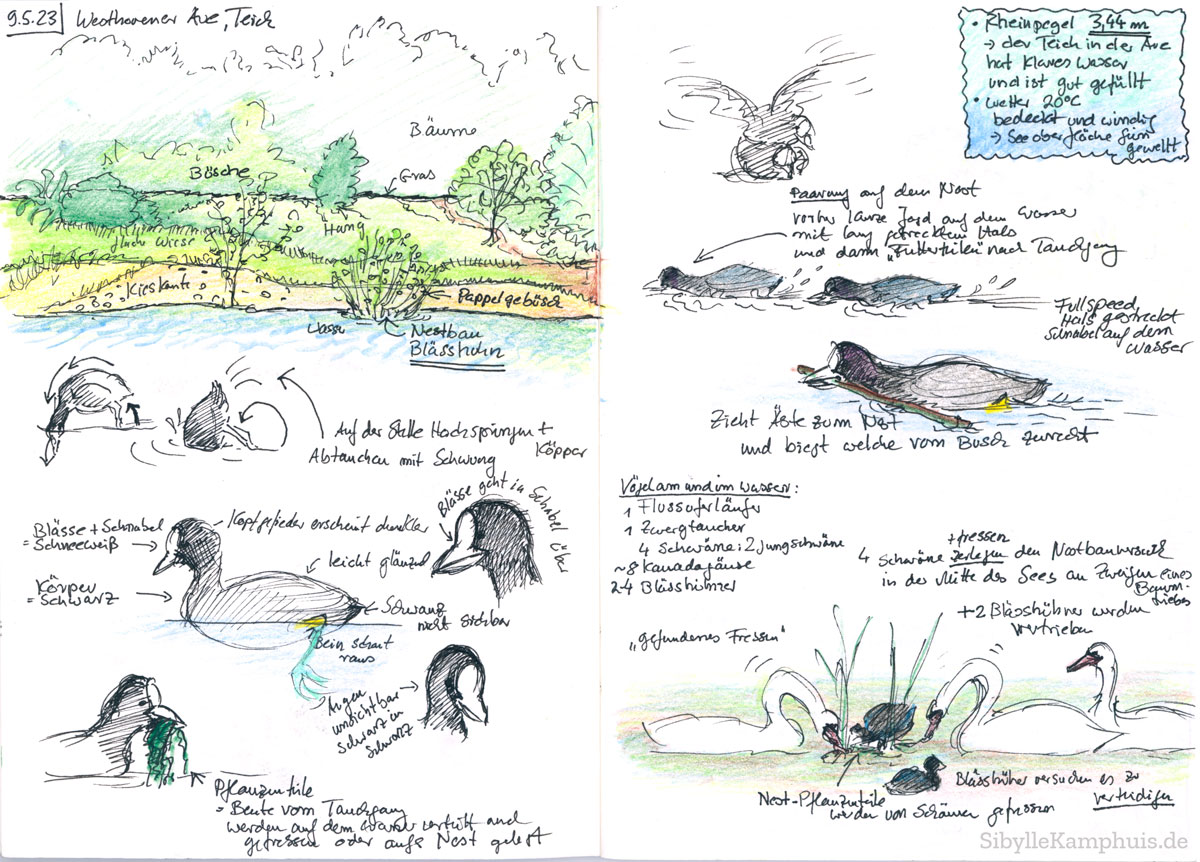 9.5.23
Westhovener Aue, Teich
Bäume
Büsche
Gras
Hang
Wiese
Kieskante
Pappelgebüsch
Nestbau
Blässhuhn
Auf der Stelle Hochspringen +
Abtauchen mit Schwung
Köpper
Blässe + Schnabel
= Schneeweiß
Kopfgefieder erscheint dunkler
Blässe geht in Schnabel über
leicht glänzend
Körper
= Schwarz
Schwanz
nicht sichtbar
Bein schaut
raus
Augen
unsichtbar
Schwarz in
Schwarz
Pflanzenteile
= Beute vom Tauchgang
werden auf dem Wasser und
gefressen oder aufs Nest gelegt
• Rheinpegel 3,44 m
→ der Teich in der Aue
hat klares Wasser
und ist gut gefüllt
• Wetter 20°C
bedeckt und windig
→ Seeoberfläche
gewellt
Paarung auf dem Nest
vorher lange Jagd auf dem Wasser
mit lang gestreckten Hals
und dann „Futterteilen" nach Tauchgang
Fullspeed
Hals gestreckt
Schnabel auf dem
Wasser
Zieht Äste zum Nest
und biegt welche vom Busch zurecht
Vögel am und im Wasser:
1 Flussuferläufer
1 Zwergtaucher
4 Schwäne: 2 Jungschwäne
~8 Kanadagänse
2-4 Blässhühner
+ fressen
4 Schwäne zerlegen den Nestbauversuch
in der Mitte des Sees an Zweigen eines
Baum-
+ 2 Blässhühner werden
vertrieben
„gefundenes Fressen"
Blässhüher versuchen es zu
verteidigen
Nest-Pflanzenteile
werden von Schwänen gefressen
SibylleKamphuis.de